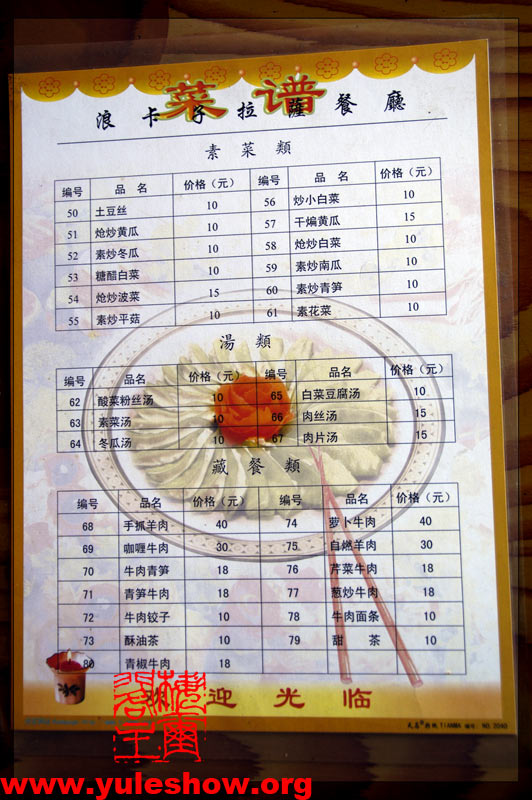 菜谱
浪卡子拉薩餐廳
素菜類
编号 品名 价格（元） 编号 品名 价格（元）
50 土豆丝 10 56 炒小白菜 10
51 炝炒黄瓜 10 57 干煸黄瓜 15
52 素炒冬瓜 10 58 炝炒白菜 10
53 糖醋白菜 10 59 素炒南瓜 10
54 炝炒菠菜 15 60 素炒青笋 10
55 素炒平菇 10 61 素花菜 10
湯類
编号 品名 价格（元） 编号 品名 价格（元）
62 酸菜粉丝汤 10 65 白菜豆腐汤 10
63 素菜汤 10 66 肉丝汤 15
64 冬瓜汤 10 67 肉片汤 15
藏餐類
编号 品名 价格（元） 编号 品名 价格（元）
68 手抓羊肉 40 74 萝卜牛肉 40
69 咖喱牛肉 30 75 自燃羊肉 30
70 牛肉青笋 18 76 芹菜牛肉 18
71 青笋牛肉 18 77 葱炒牛肉 18
72 牛肉饺子 10 78 牛肉面条 10
73 酥油茶 10 79 甜茶 10
80 青椒牛肉 18
欢迎光临
TIANMA NO. 2040
www.yuleshow.org